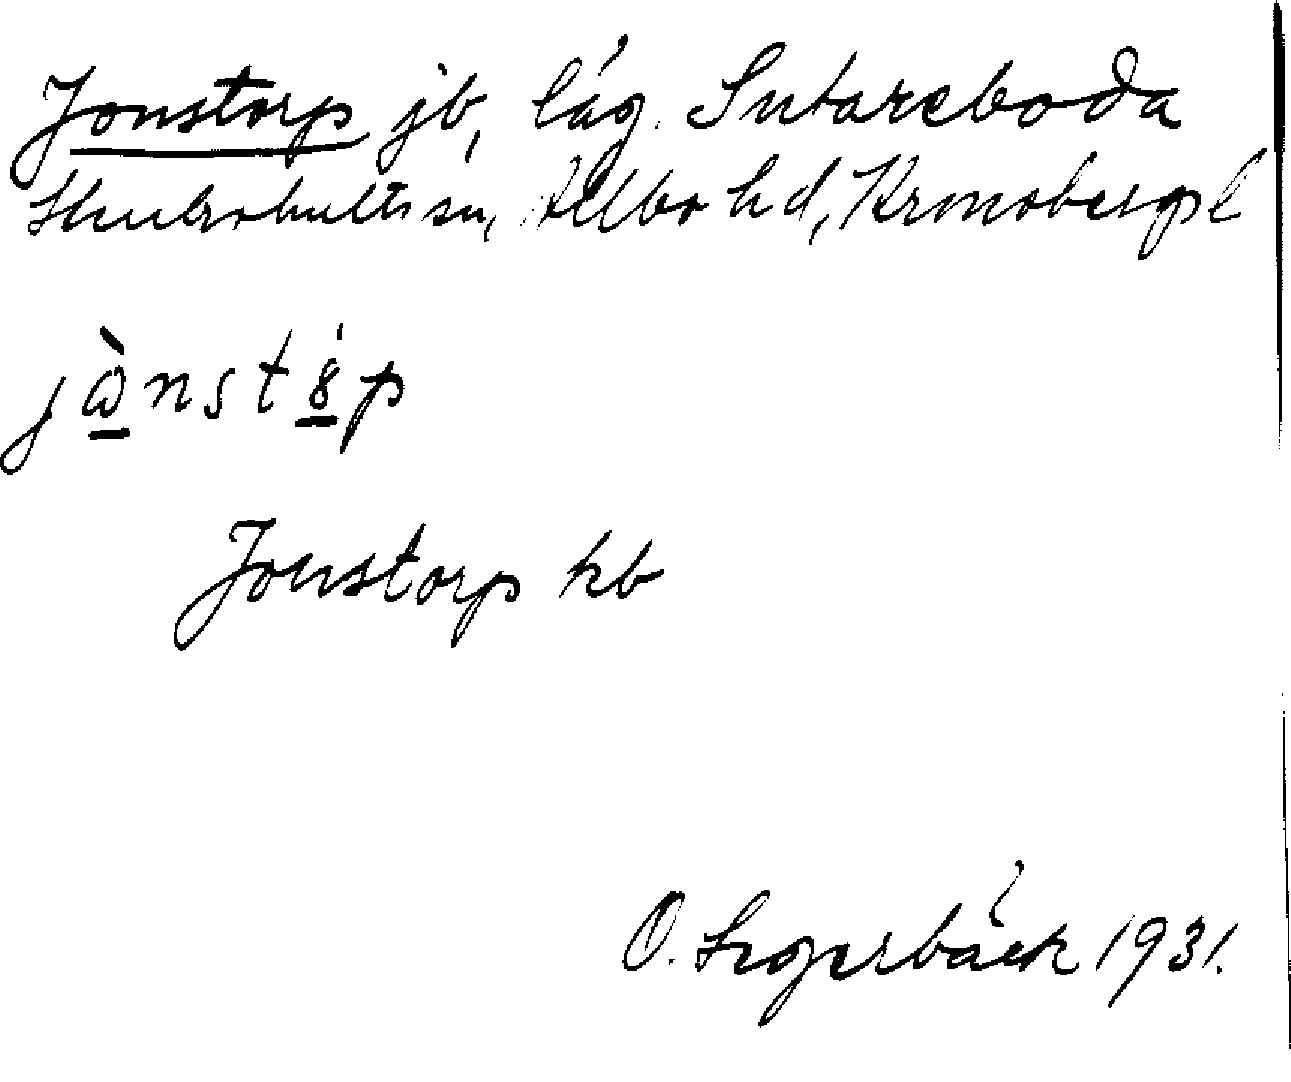 Jonstorp jb, låg. Sutareboda
Skatelövs sn, Allbo hd, Kronobergs l
jὼnstö́p
Jonstorp kb
O. Segerbäck 1931.